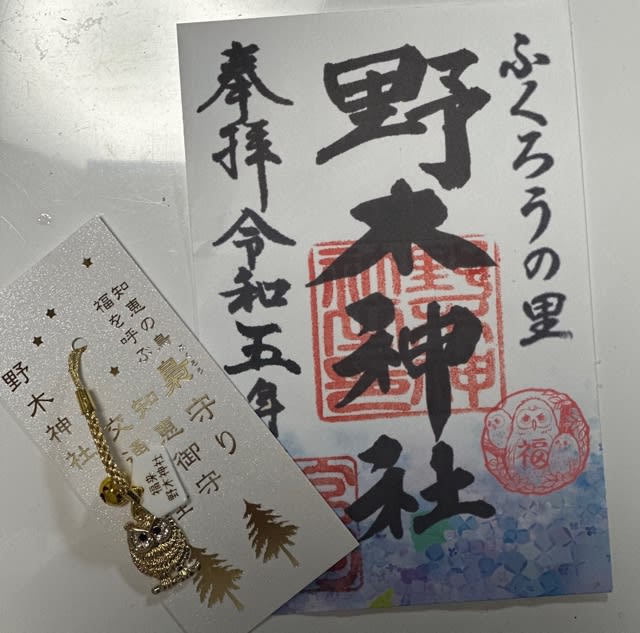 ふくろうの里
野木神社
奉拝令和五年
福
知恵の鳥
福を呼ぶ
梟守り
知恵御守
野木神社
福来
野木神社